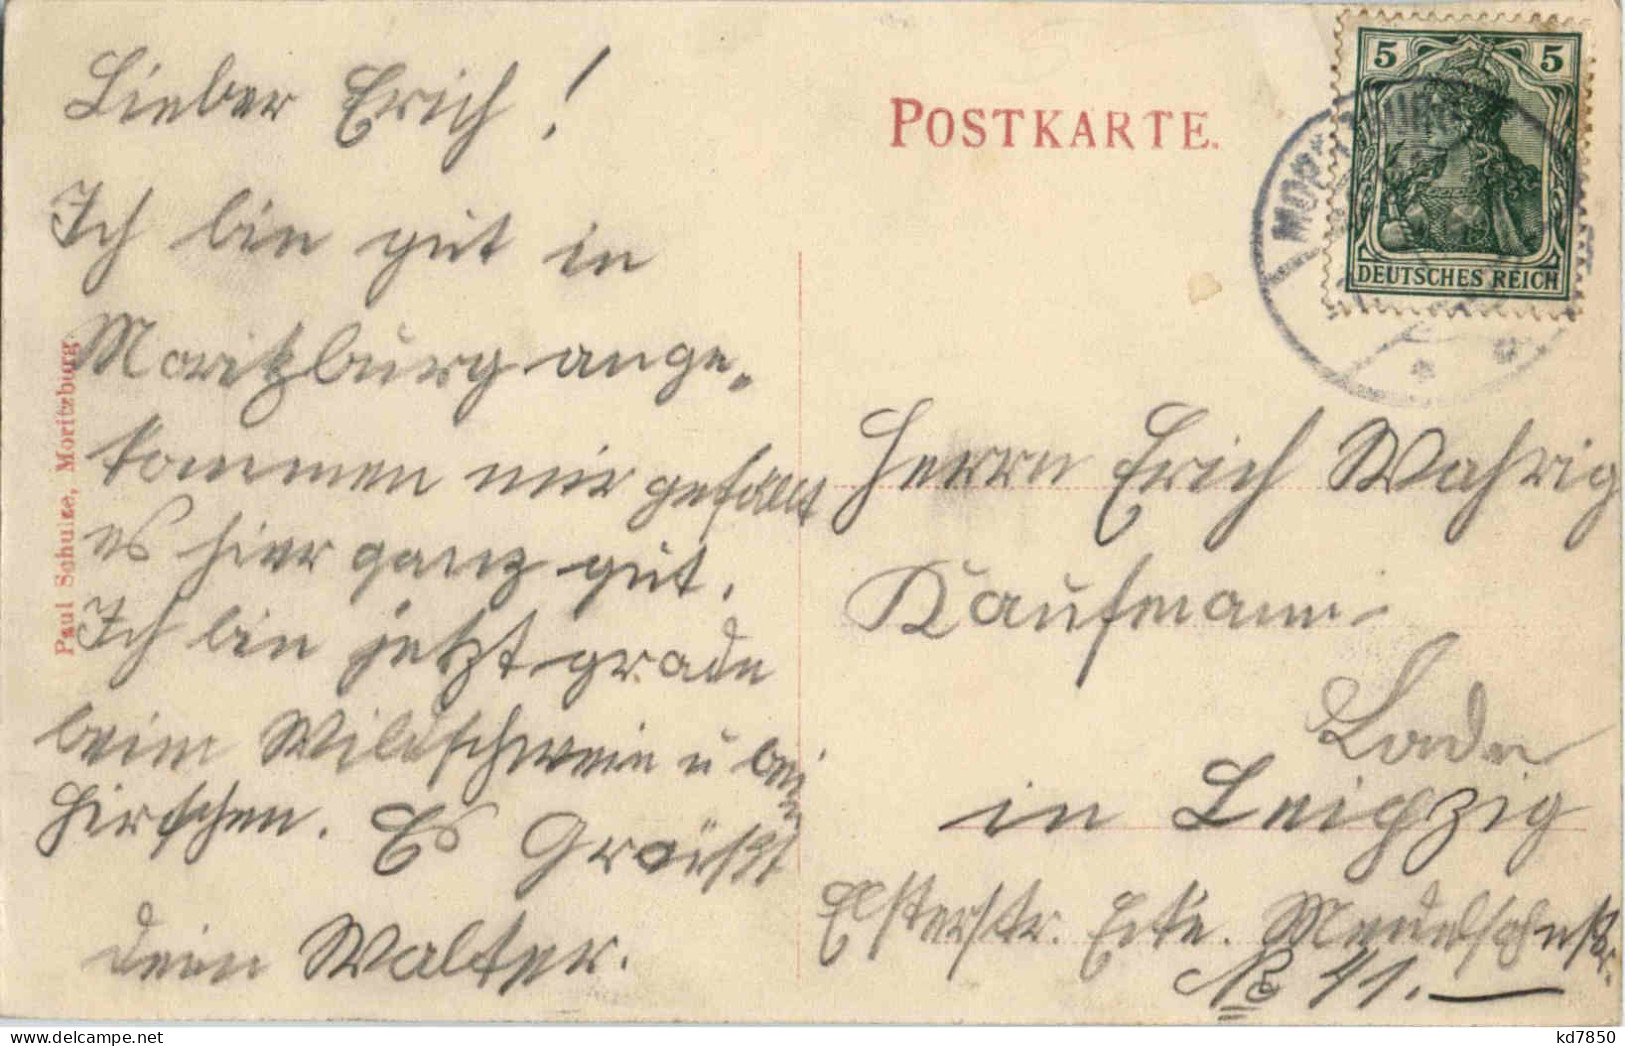 Lieber Erich!
Ich bin gut in
Moritzburg ange-
kommen mir gefällt
es hier ganz gut.
Ich bin jetzt grade
beim Wildschwein u bei
Hirschen. Es Grüßt
dein Walter.
Paul Schulze, Moritzburg.
POSTKARTE.
5 5
DEUTSCHES REICH
MORITZBURG
Herrn Erich Wahrig
Kaufmann
Laden
in Leipzig
Elsterstr. Ecke. Mendelsohnstr.
No 41.
kd7850